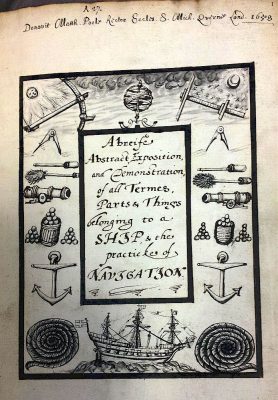 A 27.
1
Donavit Matth. Poole Rector Eccles. S. Mich. Querne Lond. 1658
A breife
Abstract Exposition
and Demonstration
of all Termes,
Parts & Things
belonging to a
SHIP & the
practicke of
NAVIGATION